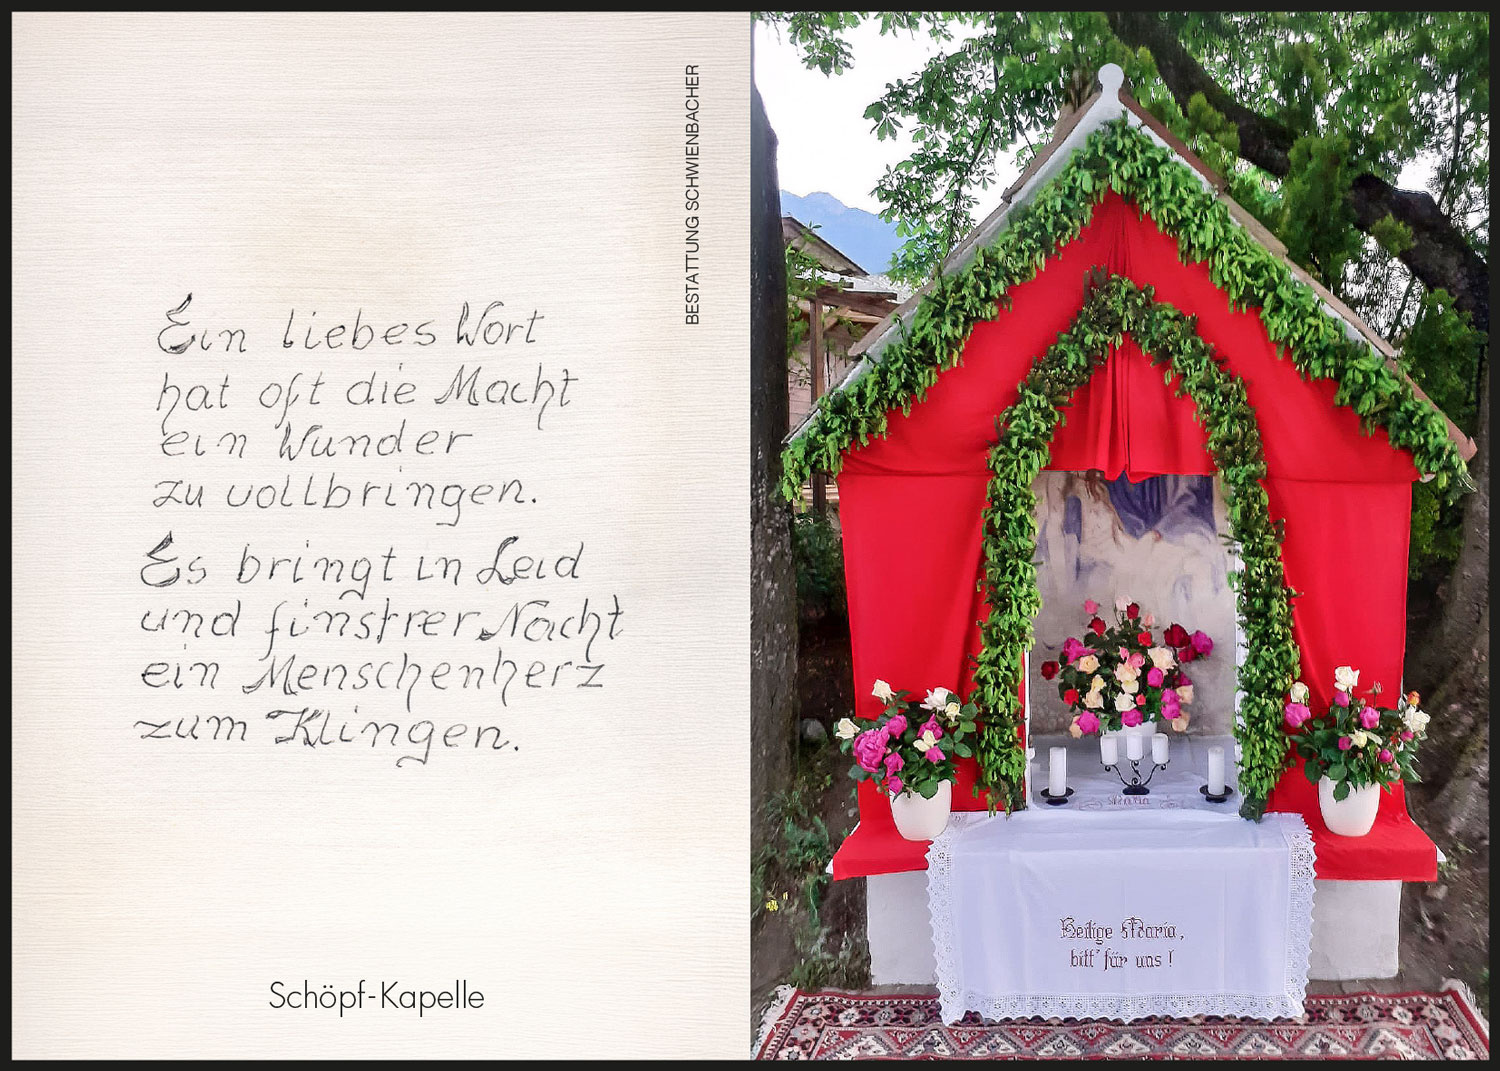 Ein liebes Wort
hat oft die Macht
ein Wunder
zu vollbringen.
Es bringt in Leid
und finstrer Nacht
ein Menschenherz
zum Klingen.
Schöpf-Kapelle
BESTATTUNG SCHWIENBACHER
Maria
Heilige Maria,
bitt' für uns!